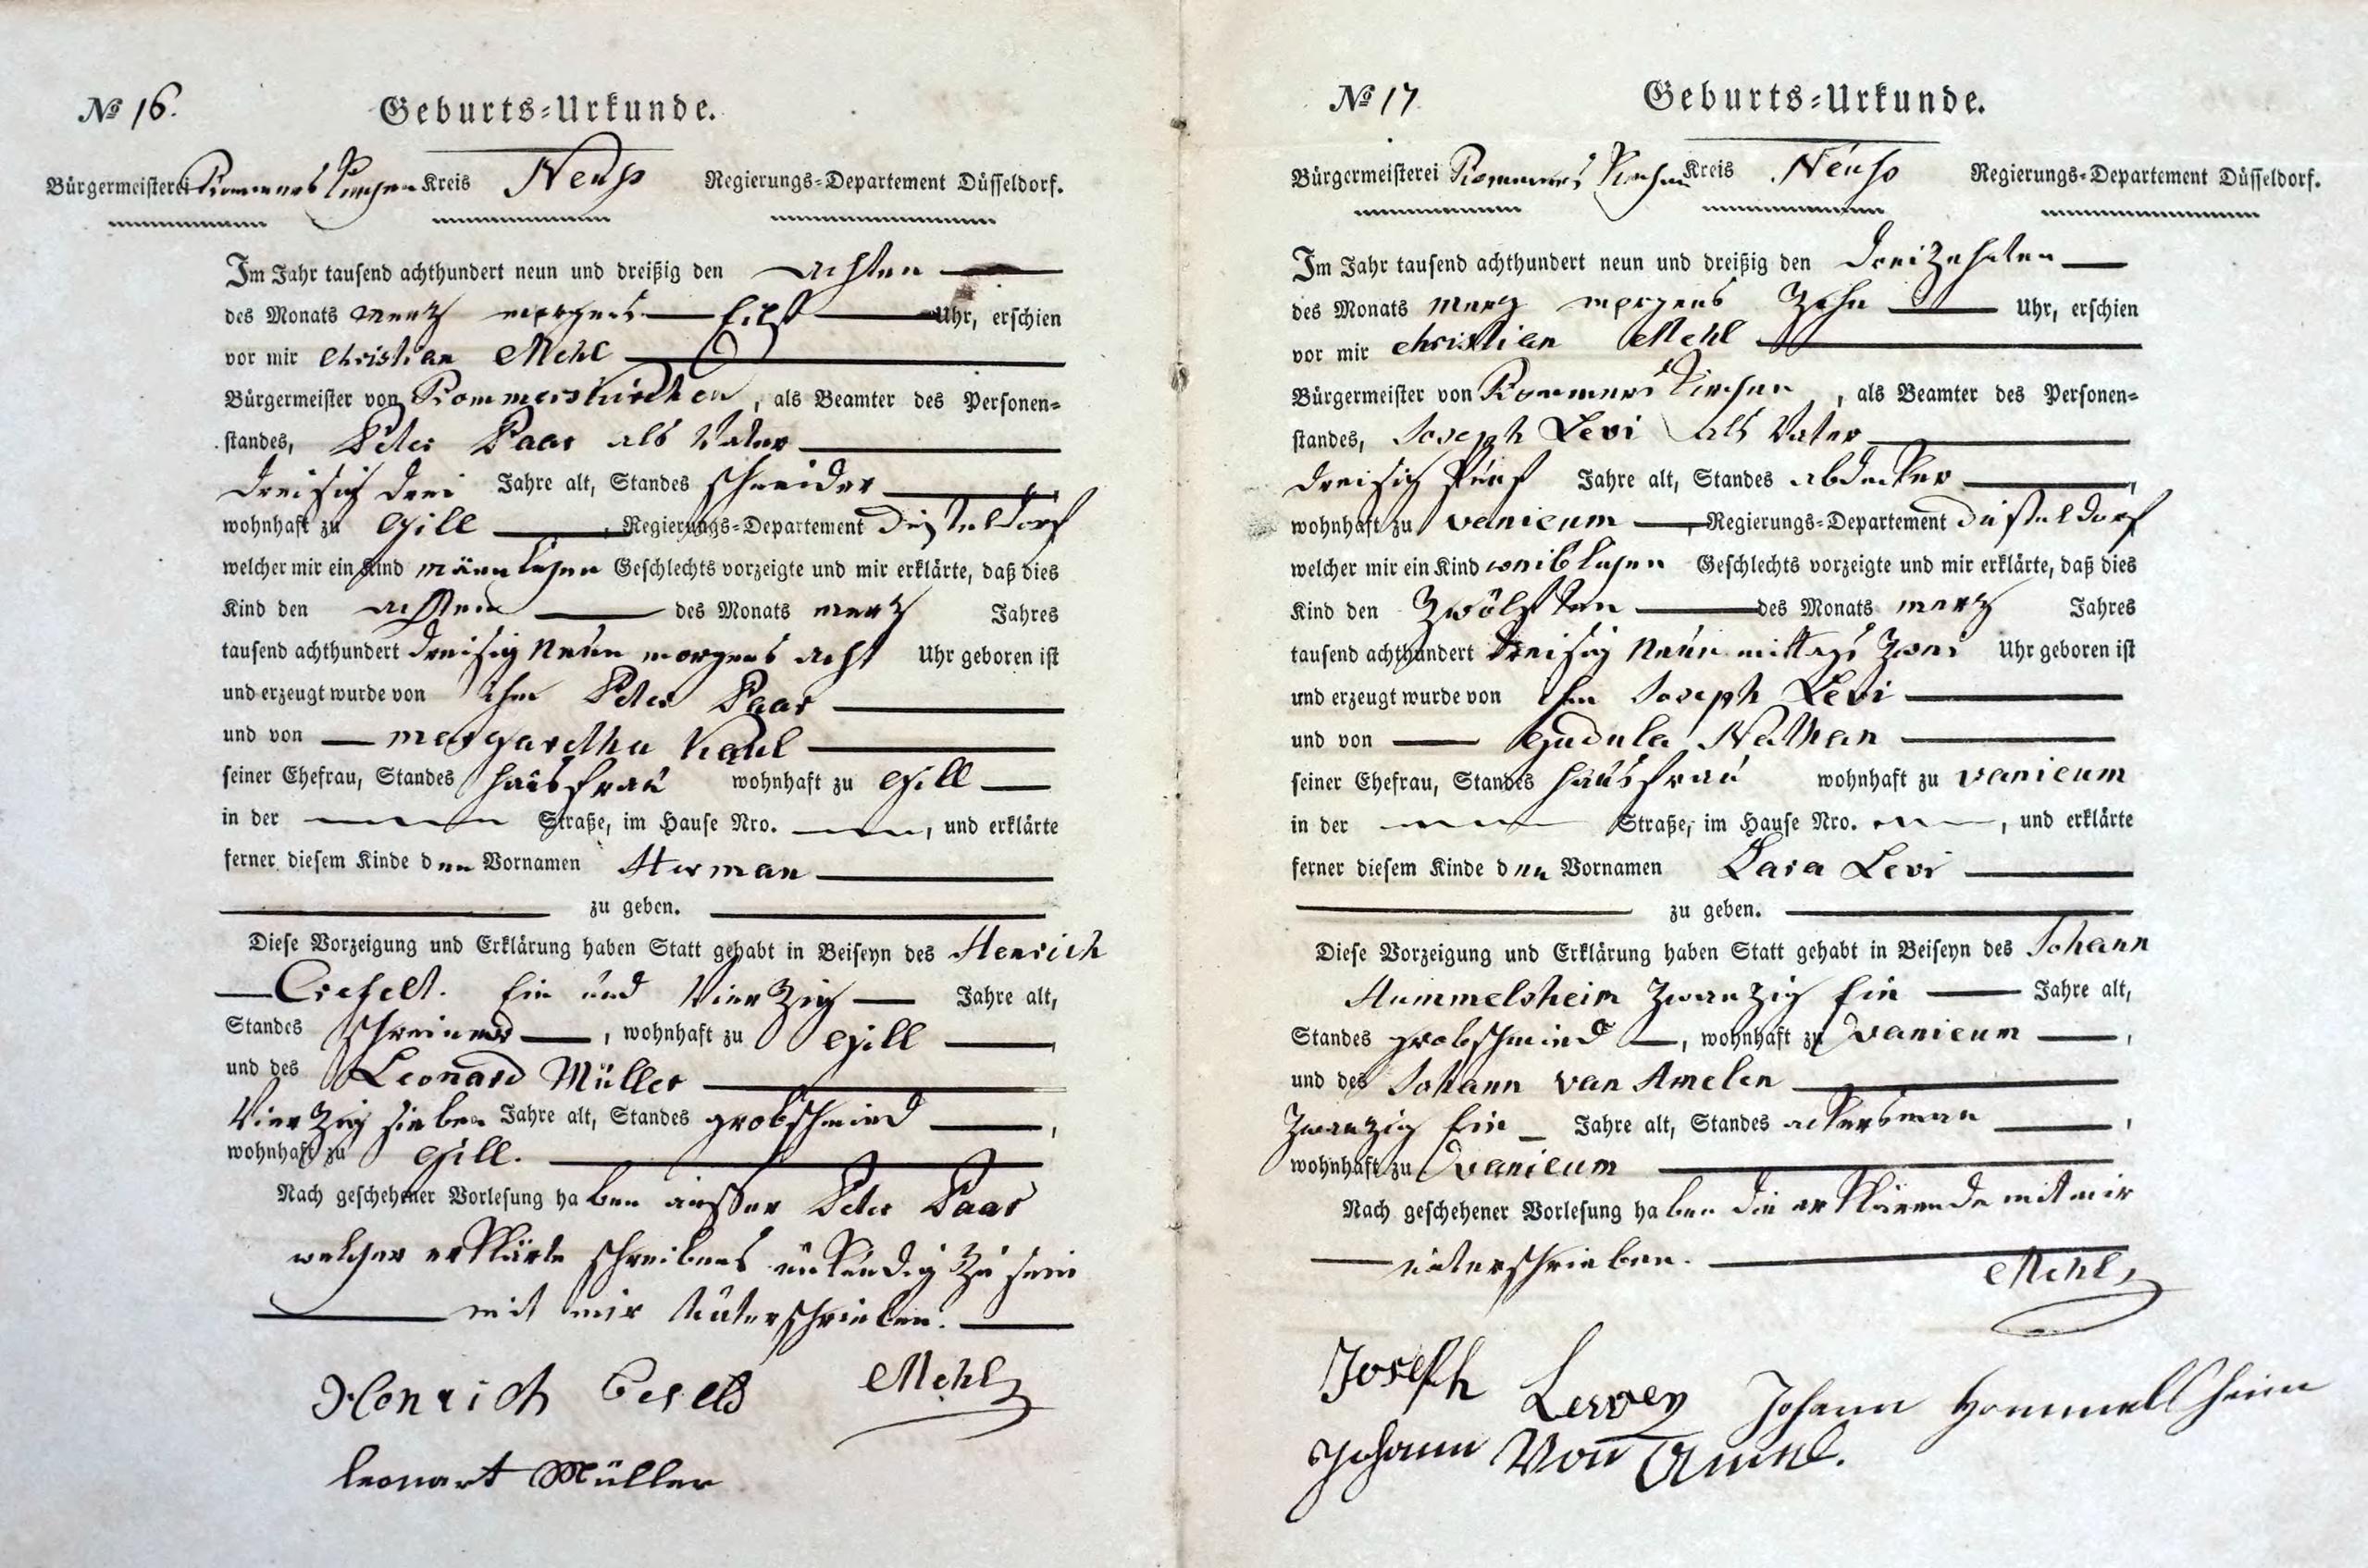 № 16.
Geburts-Urkunde.
Bürgermeisterei Rommerskirchen Kreis Neuss Regierungs-Departement Düsseldorf.
Im Jahr tausend achthundert neun und dreißig den achten
des Monats mertz morgens Eilf Uhr, erschien
vor mir Christian Mehl
Bürgermeister von Rommerskirchen, als Beamter des Personen-
standes, Peter Paar als Vater
dreisig drei Jahre alt, Standes schneider
wohnhaft zu Gill, Regierungs-Departement Düsseldorf
welcher mir ein Kind männlichen Geschlechts vorzeigte und mir erklärte, daß dies
Kind den achten des Monats mertz Jahres
tausend achthundert dreisig neun morgens acht Uhr geboren ist
und erzeugt wurde von ihm Peter Paar
und von margaretha
seiner Ehefrau, Standes hausfrau wohnhaft zu Gill
in der Straße, im Hause Nro. , und erklärte
ferner diesem Kinde den Vornamen Herman
zu geben.
Diese Vorzeigung und Erklärung haben Statt gehabt in Beiseyn des Henrich
Crefelt. Ein und Vierzig Jahre alt,
Standes schreiner, wohnhaft zu Gill,
und des Leonard Müller
Vierzig sieben Jahre alt, Standes grobschmied,
wohnhaft zu Gill.
Nach geschehener Vorlesung haben ausser Peter Paar
welcher erklärte schreibens unkundig zu sein
mit mir unterschrieben.
Henrich Mehl
leonart Müller
№ 17.
Geburts-Urkunde.
Bürgermeisterei Rommerskirchen Kreis Neuss Regierungs-Departement Düsseldorf.
Im Jahr tausend achthundert neun und dreißig den dreizehnten
des Monats mertz morgens Zehn Uhr, erschien
vor mir christian Mehl
Bürgermeister von Rommerskirchen, als Beamter des Personen-
standes, Joseph Levi als Vater
dreisig fünf Jahre alt, Standes abdecker,
wohnhaft zu vanicum, Regierungs-Departement Düsseldorf
welcher mir ein Kind weiblichen Geschlechts vorzeigte und mir erklärte, daß dies
Kind den Zwölften des Monats mertz Jahres
tausend achthundert dreisig neun mittags zwei Uhr geboren ist
und erzeugt wurde von ihm Joseph Levi
und von Gudula Nathan
seiner Ehefrau, Standes hausfrau wohnhaft zu vanicum
in der Straße, im Hause Nro. , und erklärte
ferner diesem Kinde den Vornamen Sara Levi
zu geben.
Diese Vorzeigung und Erklärung haben Statt gehabt in Beiseyn des Johann
Hummelsheim Zwanzig Ein Jahre alt,
Standes grobschmied, wohnhaft zu vanicum,
und des Johann van Amelen
Zwanzig Ein Jahre alt, Standes ackersman,
wohnhaft zu vanicum
Nach geschehener Vorlesung haben die erklärende mit mir
unterschrieben.
Mehl
Joseph Levvey Johann Hommelsheim
Johann Von Amel.